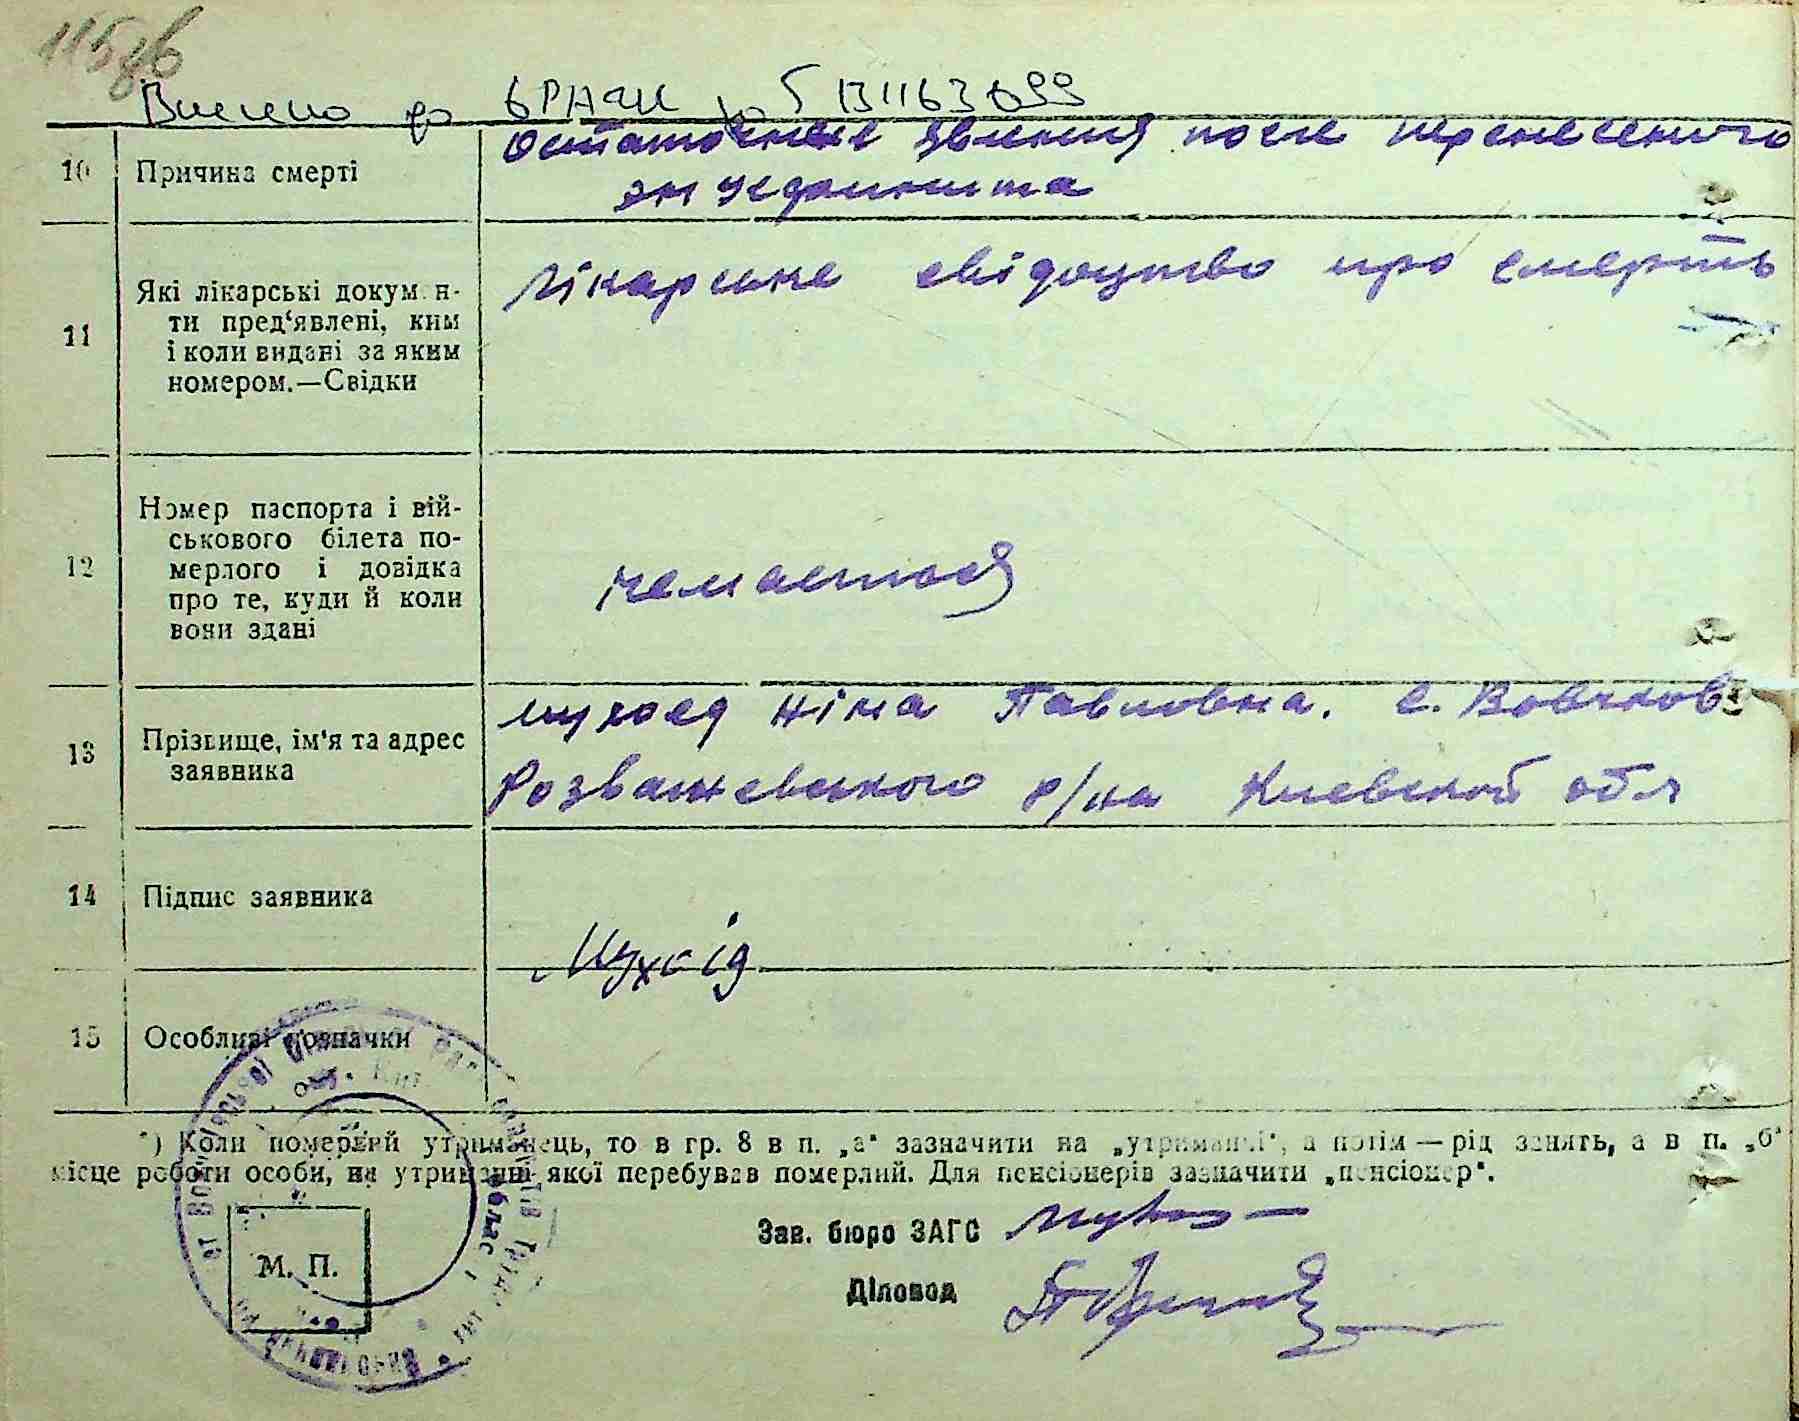 115зв
Внесено до
10 Причина смерти Остаточные явления после перенесенного
энцефалита
11 Які лікарські докумен-
ти пред‘явлені, ким
і коли видані за яким
номером.—Свідки
лікарське свідоцтво про смерть
12 Номер паспорта і вій-
ськового білета по-
мерлого і довідка
про те, куди й коли
вони здані
немається
13 Прізвище, ім'я та адрес
заявника
мухоед Ніна Павловна. с. Вовчков
Розважевського р/на Киевской обл
14 Підпис заявника
Мухоїд
15 Особливі позначки
*) Коли померлий утриманець, то в гр. 8 в п. „а“ зазначити на „утриманні“, а потім — рід занять, а в п. „б“
місце роботи особи, на утриманні якої перебував померлий. Для пенсіонерів зазначити „пенсіонер“.
Зав. бюро ЗАГС
Діловод
М. П.